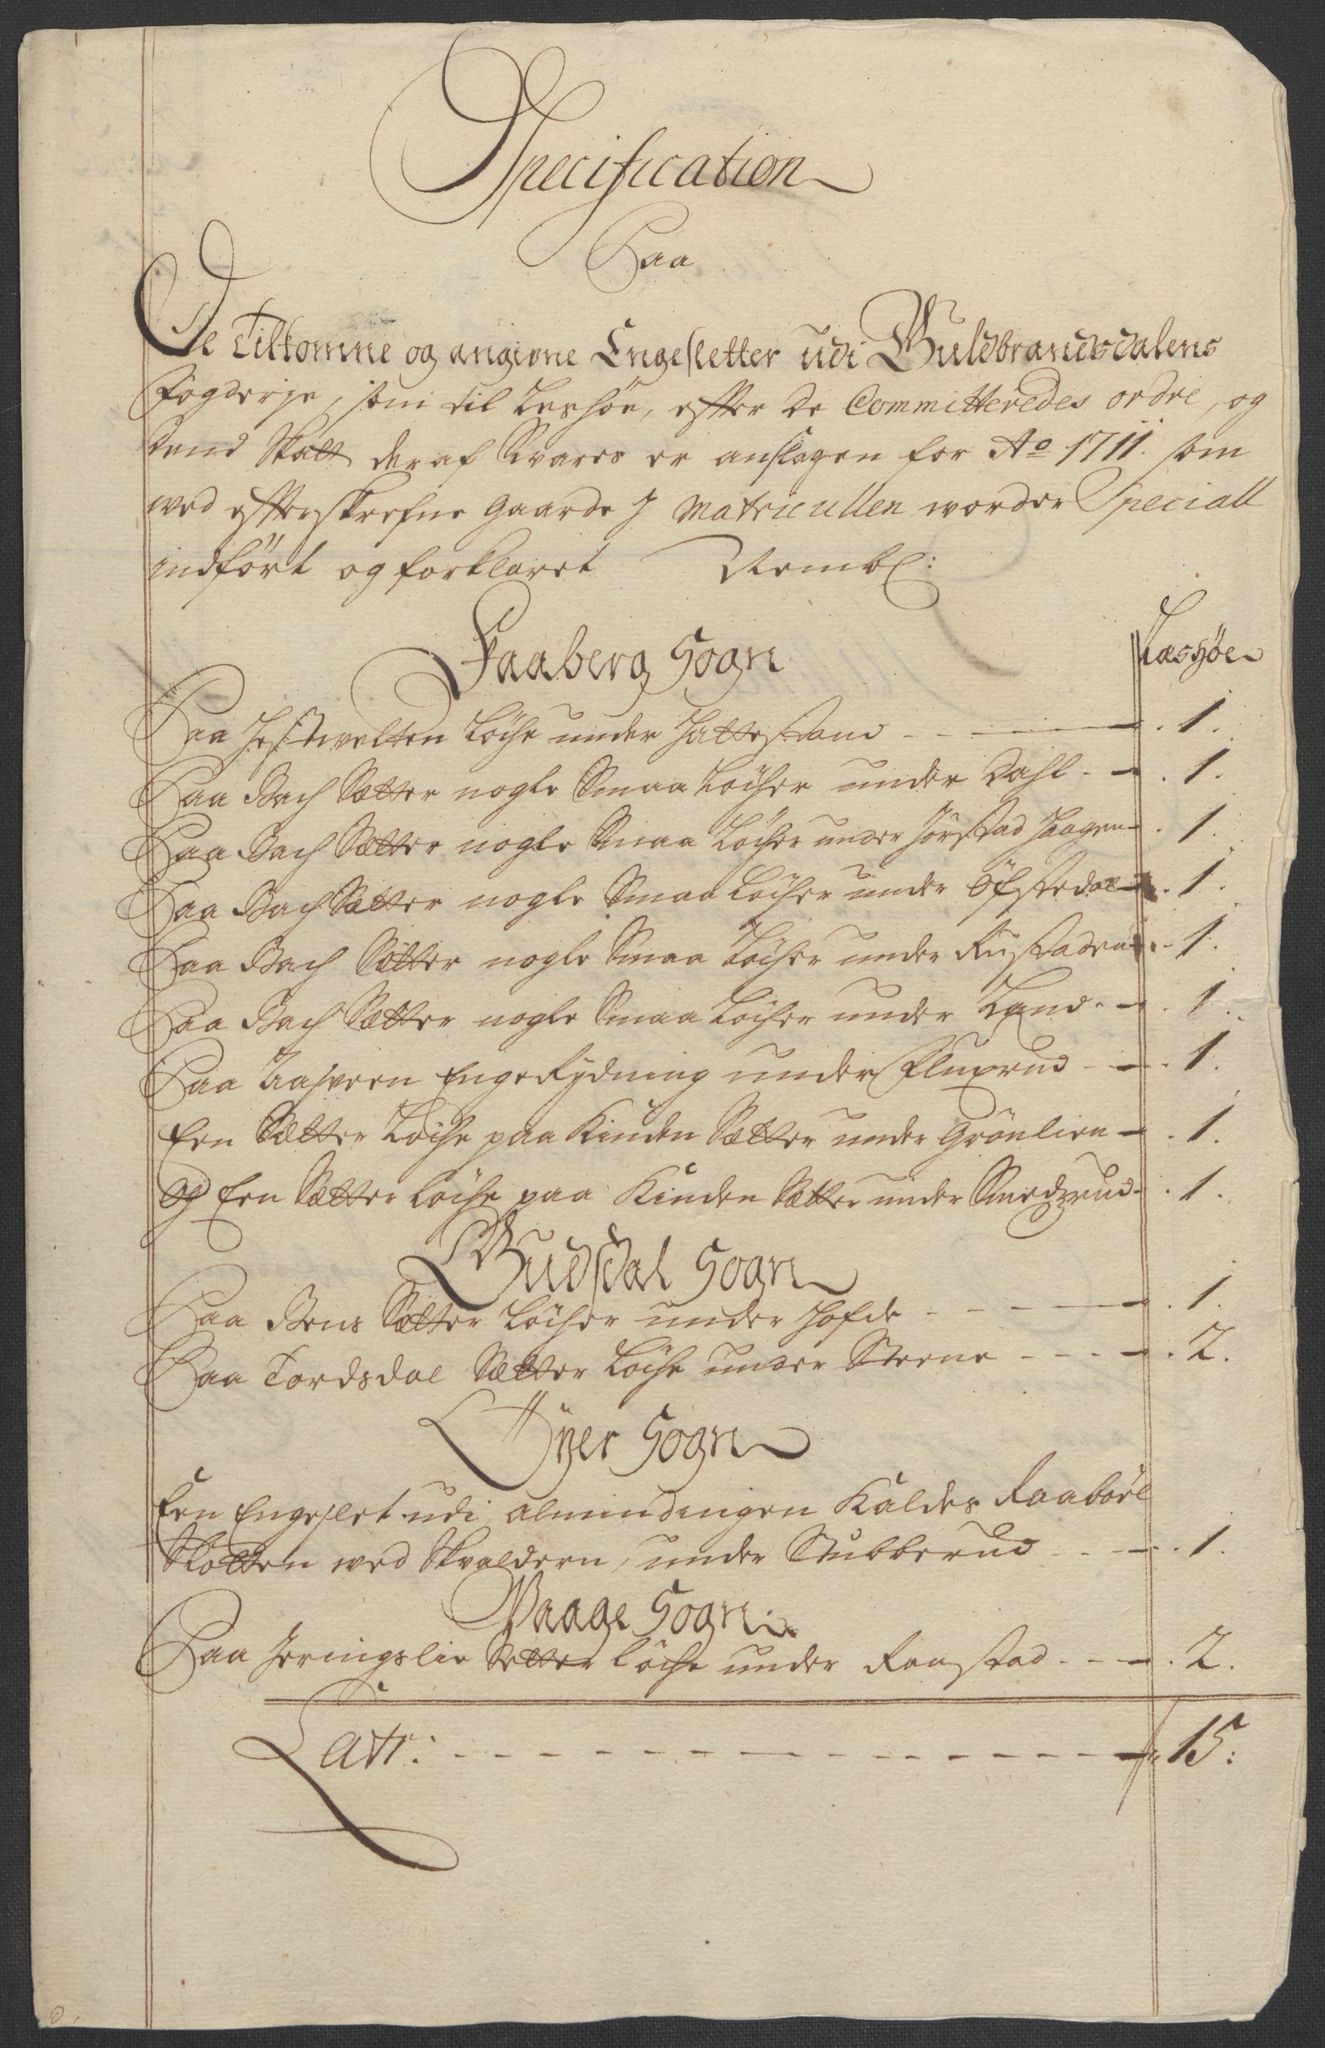 Specification
Paa
De Tilkomne og angivne Engesletter udi Guldbrandsdalens
Fogderje, som til Leshøe, efter de Committeredes ordre, og
dend Skatt deraf Svares er anslagen for Ao 1711. som
ved efterskrefne gaarde J Matricullen worder Speciall
indført og forklaret Nembl:
Faaberg Sogn
Læshøe
Paa Hestvelten Löche under Hattestand 1.
Paa Bach Sætter nogle Smaa Löcher under Dahl 1.
Paa Bach Sætter nogle Smaa Löcher under Jörstad Haagen 1.
Paa Bach Sætter nogle Smaa Löcher under Öfstedal 1.
Paa Bach Sætter nogle Smaa Löcher under Rustaden 1.
Paa Bach Sætter nogle Smaa Löcher under Land 1.
Paa Aasveen Enge Rydning under Fluxrud 1.
Een Sætter Löche paa Kinden Sætter under Grönlien 1.
Og Een Sætter Löche paa Kinden Sætter under Smedzrud 1.
Gudsdal Sogn
Paa Bens Sætter Löcher under Hofde 1.
Paa Tordsdal Sætter Löche under Steene 2.
Öyer Sogn
Een Engeslet udi almindingen Kaldes Raaböel
Slotten ved Skvaldern, under Stubberud 1.
Vaage Sogn:
Paa Heringslie Sætter Löche under Raastad 2.
Latr: 15: